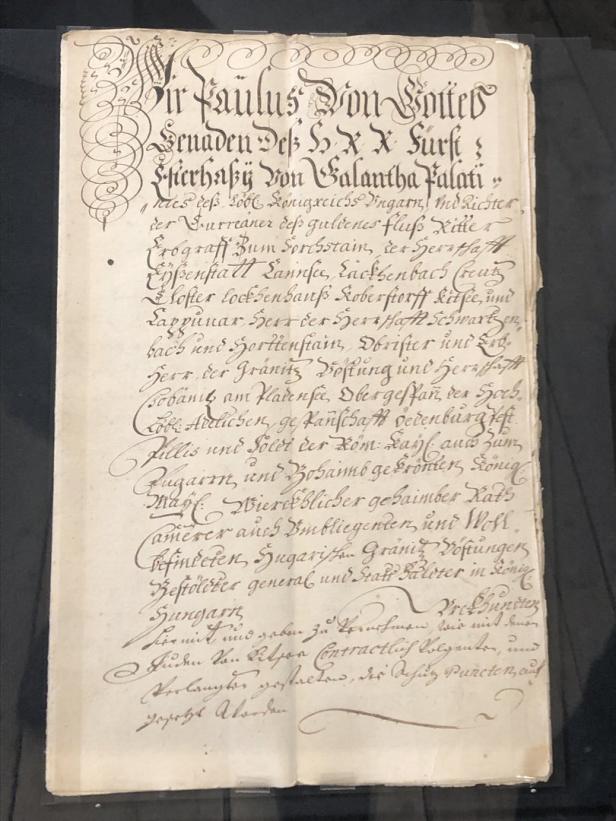 Wir Paülus Von Gottes
Genaden Deß H R R Fürst
Esterhasÿ Von Galantha Palati
nus deß Löbl. Königreichs Ungarn, und Richter
der Cumaner deß guldenes fluß Ritter
Erbgraff Zum Forchstain, der Herrschafft
Eÿßenstatt Lannsee, Lackhenbach Creutz
Closter lockhenhauß Koberstorff Kitsee, und
Cappuuar, Herr der Herrschafft Schwartzen
bach und Horttenstain, Obrister und Erb
Herr, der Gränitz Vöstung und Herrschafft
Csobánz am Platensee, Obergespañ, der Hoch
Löbl. Adlichen, gespanschafft Ödenburg Pest
Pillis und Soldt der Röm: Kaÿl. auch Zum
Hungarn, und Böhaimb gekrönten König.
Maÿl: Wierckhlicher gehaimber Rath
Camerer auch Umbliegenten, und Wohl
befindeten, Hungarischen Gränitz Vöstungen
Bestölter general und Statt Halter in Königl.
Hungarn
Urkhundten
hiermit, und geben zu Vernehmen, wie mit denen
Juden Von Kitsee Contractlich Volgenter, und
Verlangter gestalten, die Schutz Puncten, auf
gesetzt Worden